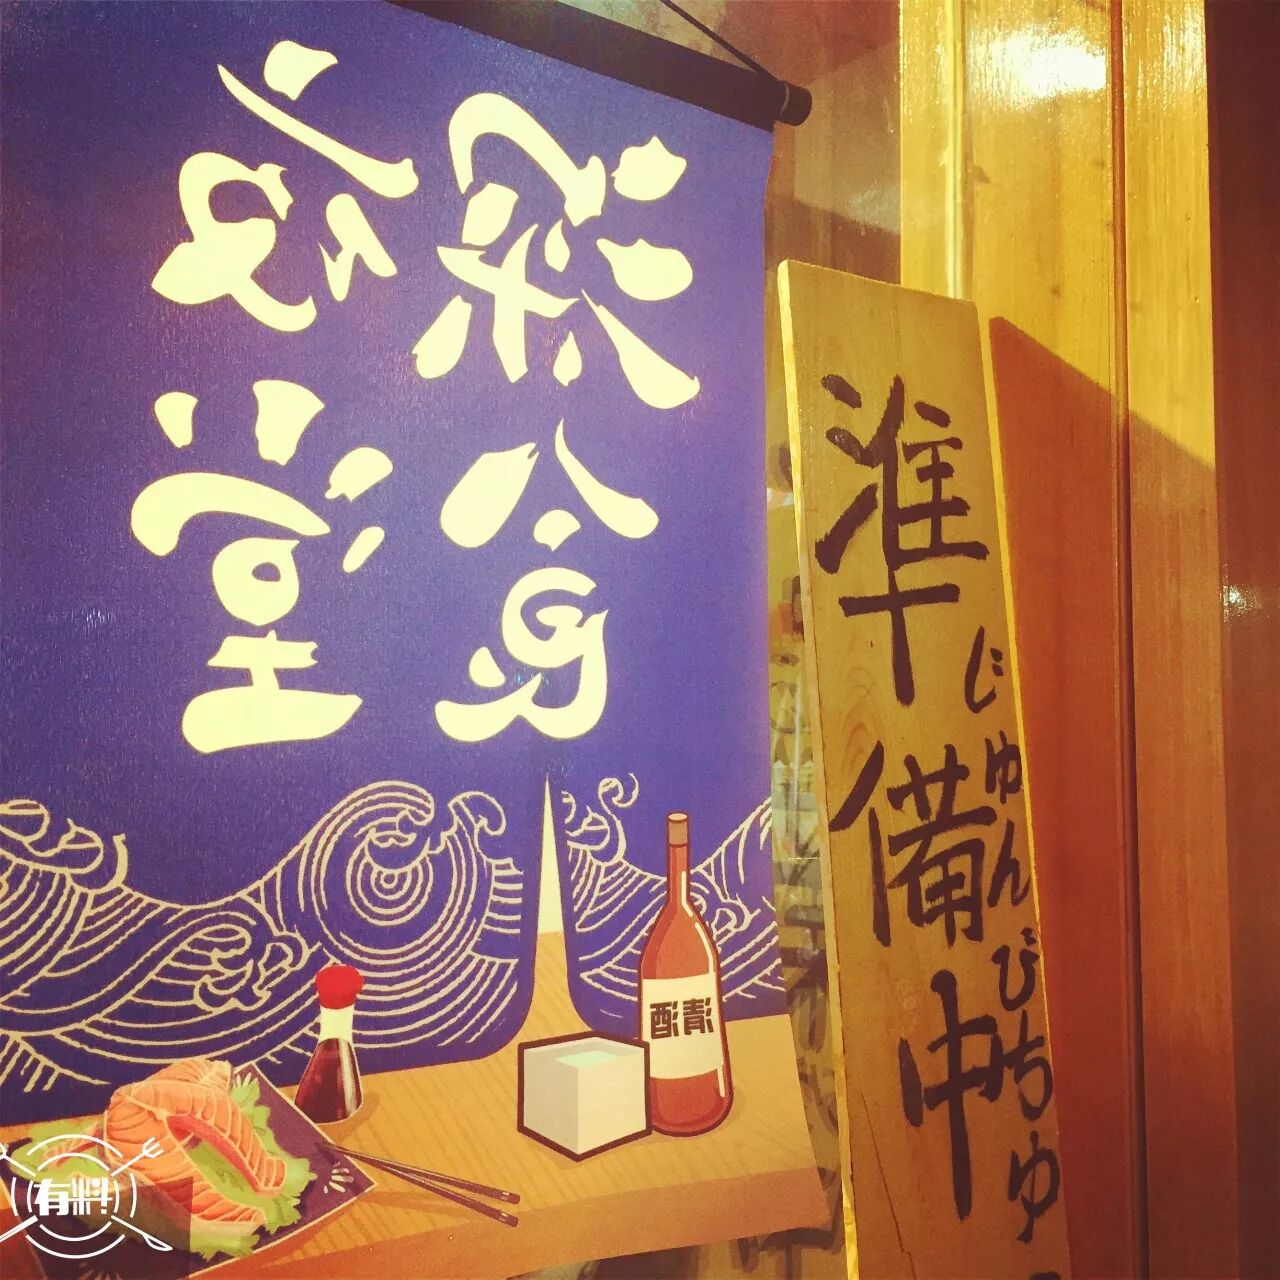 深夜
食堂
清酒
準備中
じゅんびちゅ
有料